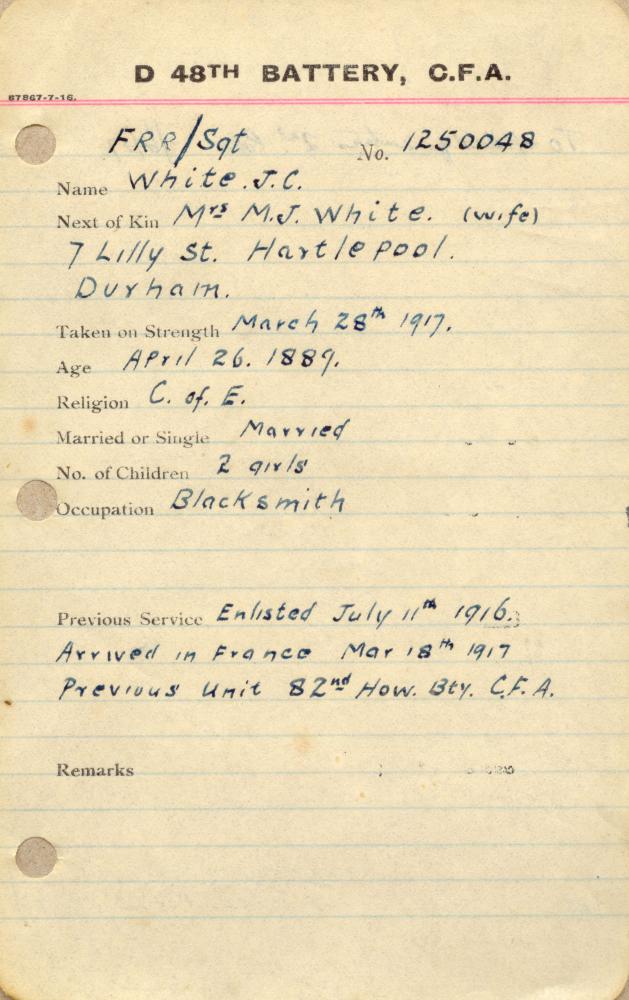 D 48TH BATTERY, C.F.A.
67867-7-16.
FRR/Sgt No. 1250048
Name White. J.C.
Next of Kin Mrs M.J. White. (wife)
7 Lilly St. Hartlepool.
Durham.
Taken on Strength March 28th 1917.
Age April 26. 1889.
Religion C. of. E.
Married or Single Married
No. of Children 2 girls
Occupation Blacksmith
Previous Service Enlisted July 11th 1916.
Arrived in France Mar 18th 1917
Previous Unit 82nd How. Bty. C.F.A.
Remarks